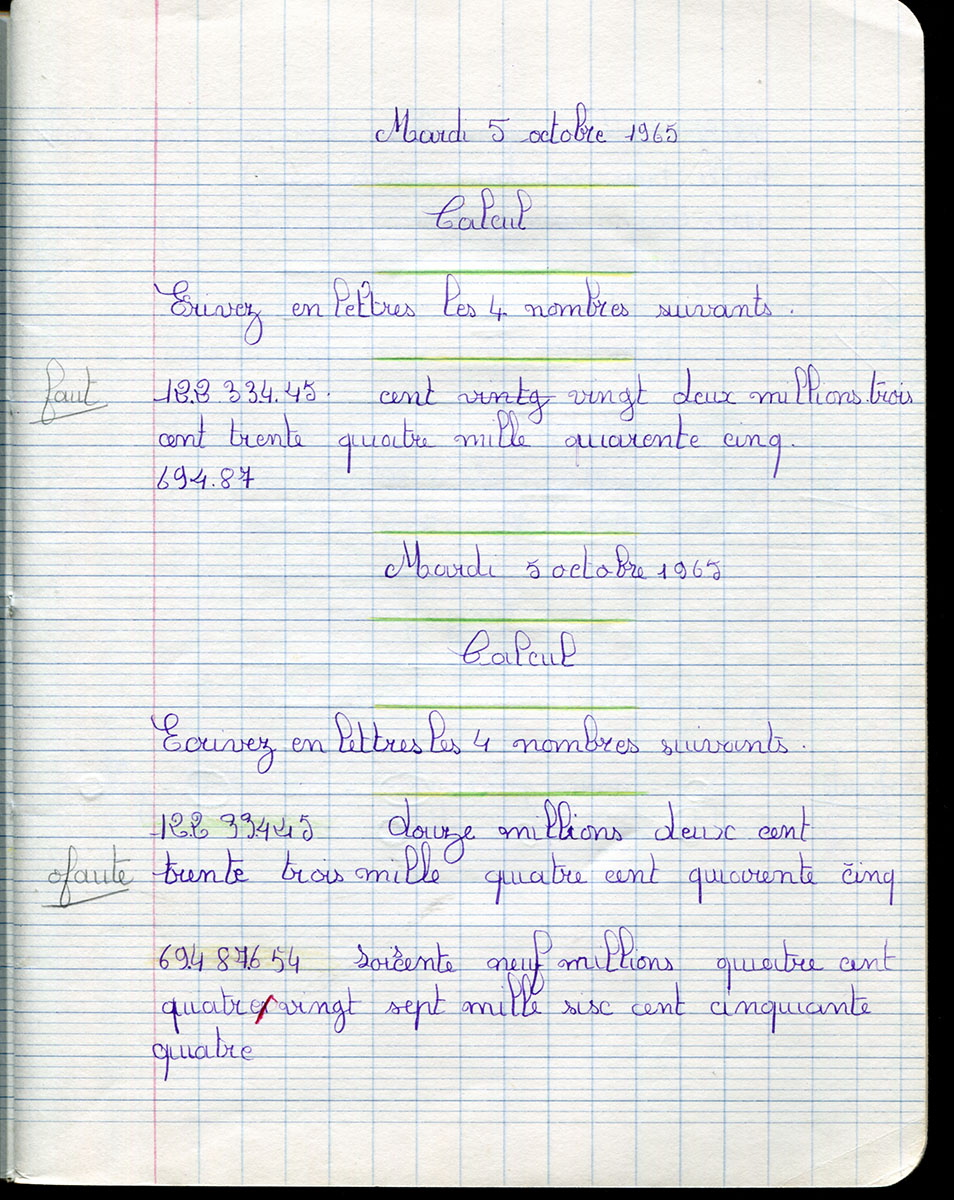 Mardi 5 octobre 1965
Calcul
Ecrivez en lettres les 4 nombres suivants.
faut
122 334.45. cent vintg vingt deux millions trois
cent trente quatre mille quarente cinq.
694.87
Mardi 5 octobre 1965
Calcul
Ecrivez en lettres les 4 nombres suivants.
122 33445 douze millions deux cent
0faute
trente trois mille quatre cent quarente cinq
694 87654 soicente neuf millions quatre cent
quatre vingt sept mille sisc cent cinquante
quatre